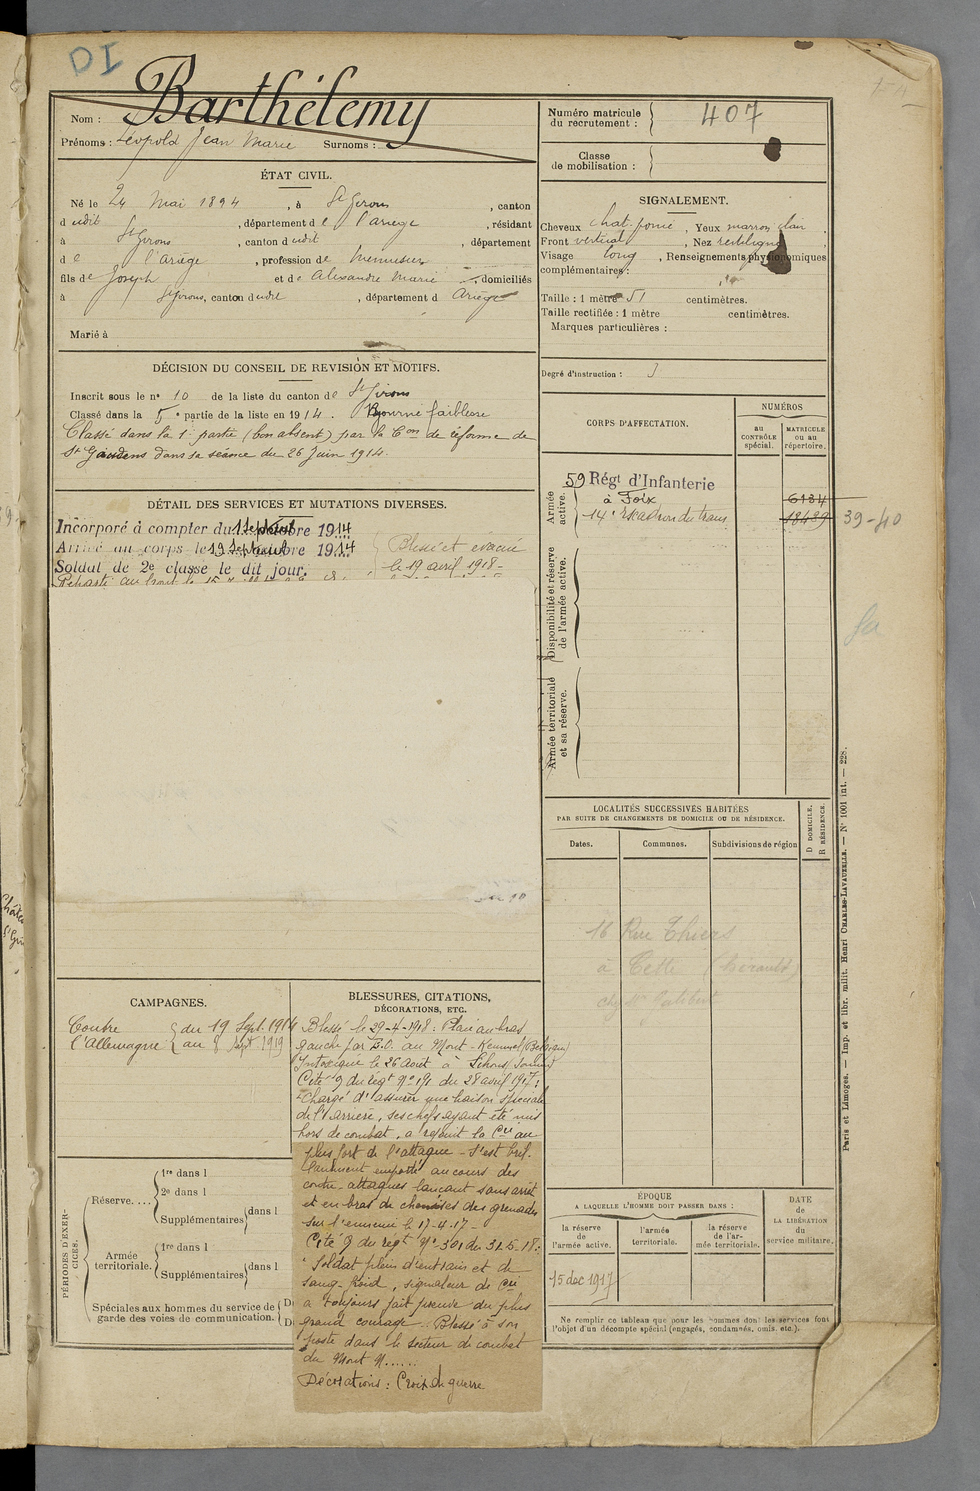 DI
Nom : Barthélemy
Prénoms : Léopold Jean Marie Surnoms :
Numéro matricule du recrutement : 407
Classe de mobilisation :
ÉTAT CIVIL.
Né le 24 Mai 1894, à St Girons, canton
dudit, département de l'ariège, résidant
à St Girons, canton dudit, département
de l'Ariège, profession de menuisier
fils de Joseph et de Alexandre Marie domiciliés
à St Girons, canton dudit, département d Ariège
Marié à
SIGNALEMENT.
Cheveux chat. foncé, Yeux marron clair
Front vertical, Nez rectiligne
Visage long, Renseignements physionomiques
complémentaires :
Taille : 1 mètre 51 centimètres.
Taille rectifiée : 1 mètre centimètres.
Marques particulières :
Degré d'instruction : 3
DÉCISION DU CONSEIL DE REVISION ET MOTIFS.
Inscrit sous le n° 10 de la liste du canton de St Girons
Classé dans la 5e partie de la liste en 1914. Ajourné faiblesse
Classé dans la 1e partie (bon absent) par la Con de réforme de
St Gaudens dans sa séance du 26 Juin 1914.
DÉTAIL DES SERVICES ET MUTATIONS DIVERSES.
Incorporé à compter du 1914
Arrivé au corps le 1914
Soldat de 2e classe le dit jour.
Blessé et évacué
le 19 avril 1918 -
CORPS D'AFFECTATION.
NUMÉROS
au CONTRÔLE spécial.
MATRICULE ou au répertoire.
Armée active.
59 Régt d'Infanterie
à Foix 6184
14e Escadron du train 18489
39-40
Disponibilité et réserve de l'armée active.
Armée territoriale et sa réserve.
LOCALITÉS SUCCESSIVES HABITÉES
PAR SUITE DE CHANGEMENTS DE DOMICILE OU DE RÉSIDENCE.
Dates. Communes. Subdivisions de région
D DOMICILE.
R RÉSIDENCE.
16 Rue Thiers
à Cette (Hérault)
CAMPAGNES.
Contre l'Allemagne { du 19 Sept. 1914
au 8 Sept 1919
BLESSURES, CITATIONS,
DÉCORATIONS, ETC.
Blessé le 29-4-1918 : Plaie au bras
gauche par E.O. au Mont-Kemmel (Belgique)
Intoxiqué le 26 août à Lihons (Somme)
Cité O du régt N° 191 du 28 avril 1917 :
"Chargé d'assurer une liaison spéciale
de l'arrière, ses chefs ayant été mis
hors de combat, a rejoint la Cie au
plus fort de l'attaque - S'est bril-
lamment emporté au cours des
contre-attaques lançant sans arrêt
et en bras de chemises des grenades
sur l'ennemi le 17-4-17 -
Cité O du régt N° 301 du 31-5-18 :
"Soldat plein d'entrain et de
sang-froid, signaleur de Cie
a toujours fait preuve du plus
grand courage. Blessé à son
poste dans le secteur de combat
du Mont K......
Décorations : Croix de guerre
PÉRIODES D'EXERCICES.
Réserve....
1re dans l
2e dans l
Supplémentaires dans l
Armée territoriale.
1re dans l
Supplémentaires dans l
Spéciales aux hommes du service de
garde des voies de communication.
ÉPOQUE
A LAQUELLE L'HOMME DOIT PASSER DANS :
la réserve de l'armée active.
l'armée territoriale.
la réserve de l'armée territoriale.
DATE de LA LIBÉRATION du service militaire.
15 dec 1917
Ne remplir ce tableau que pour les hommes dont les services font
l'objet d'un décompte spécial (engagés, condamnés, omis, etc.).
Paris et Limoges. — Imp. et libr. milit. Henri CHARLES-LAVAUZELLE. — N° 1001 int. — 228.